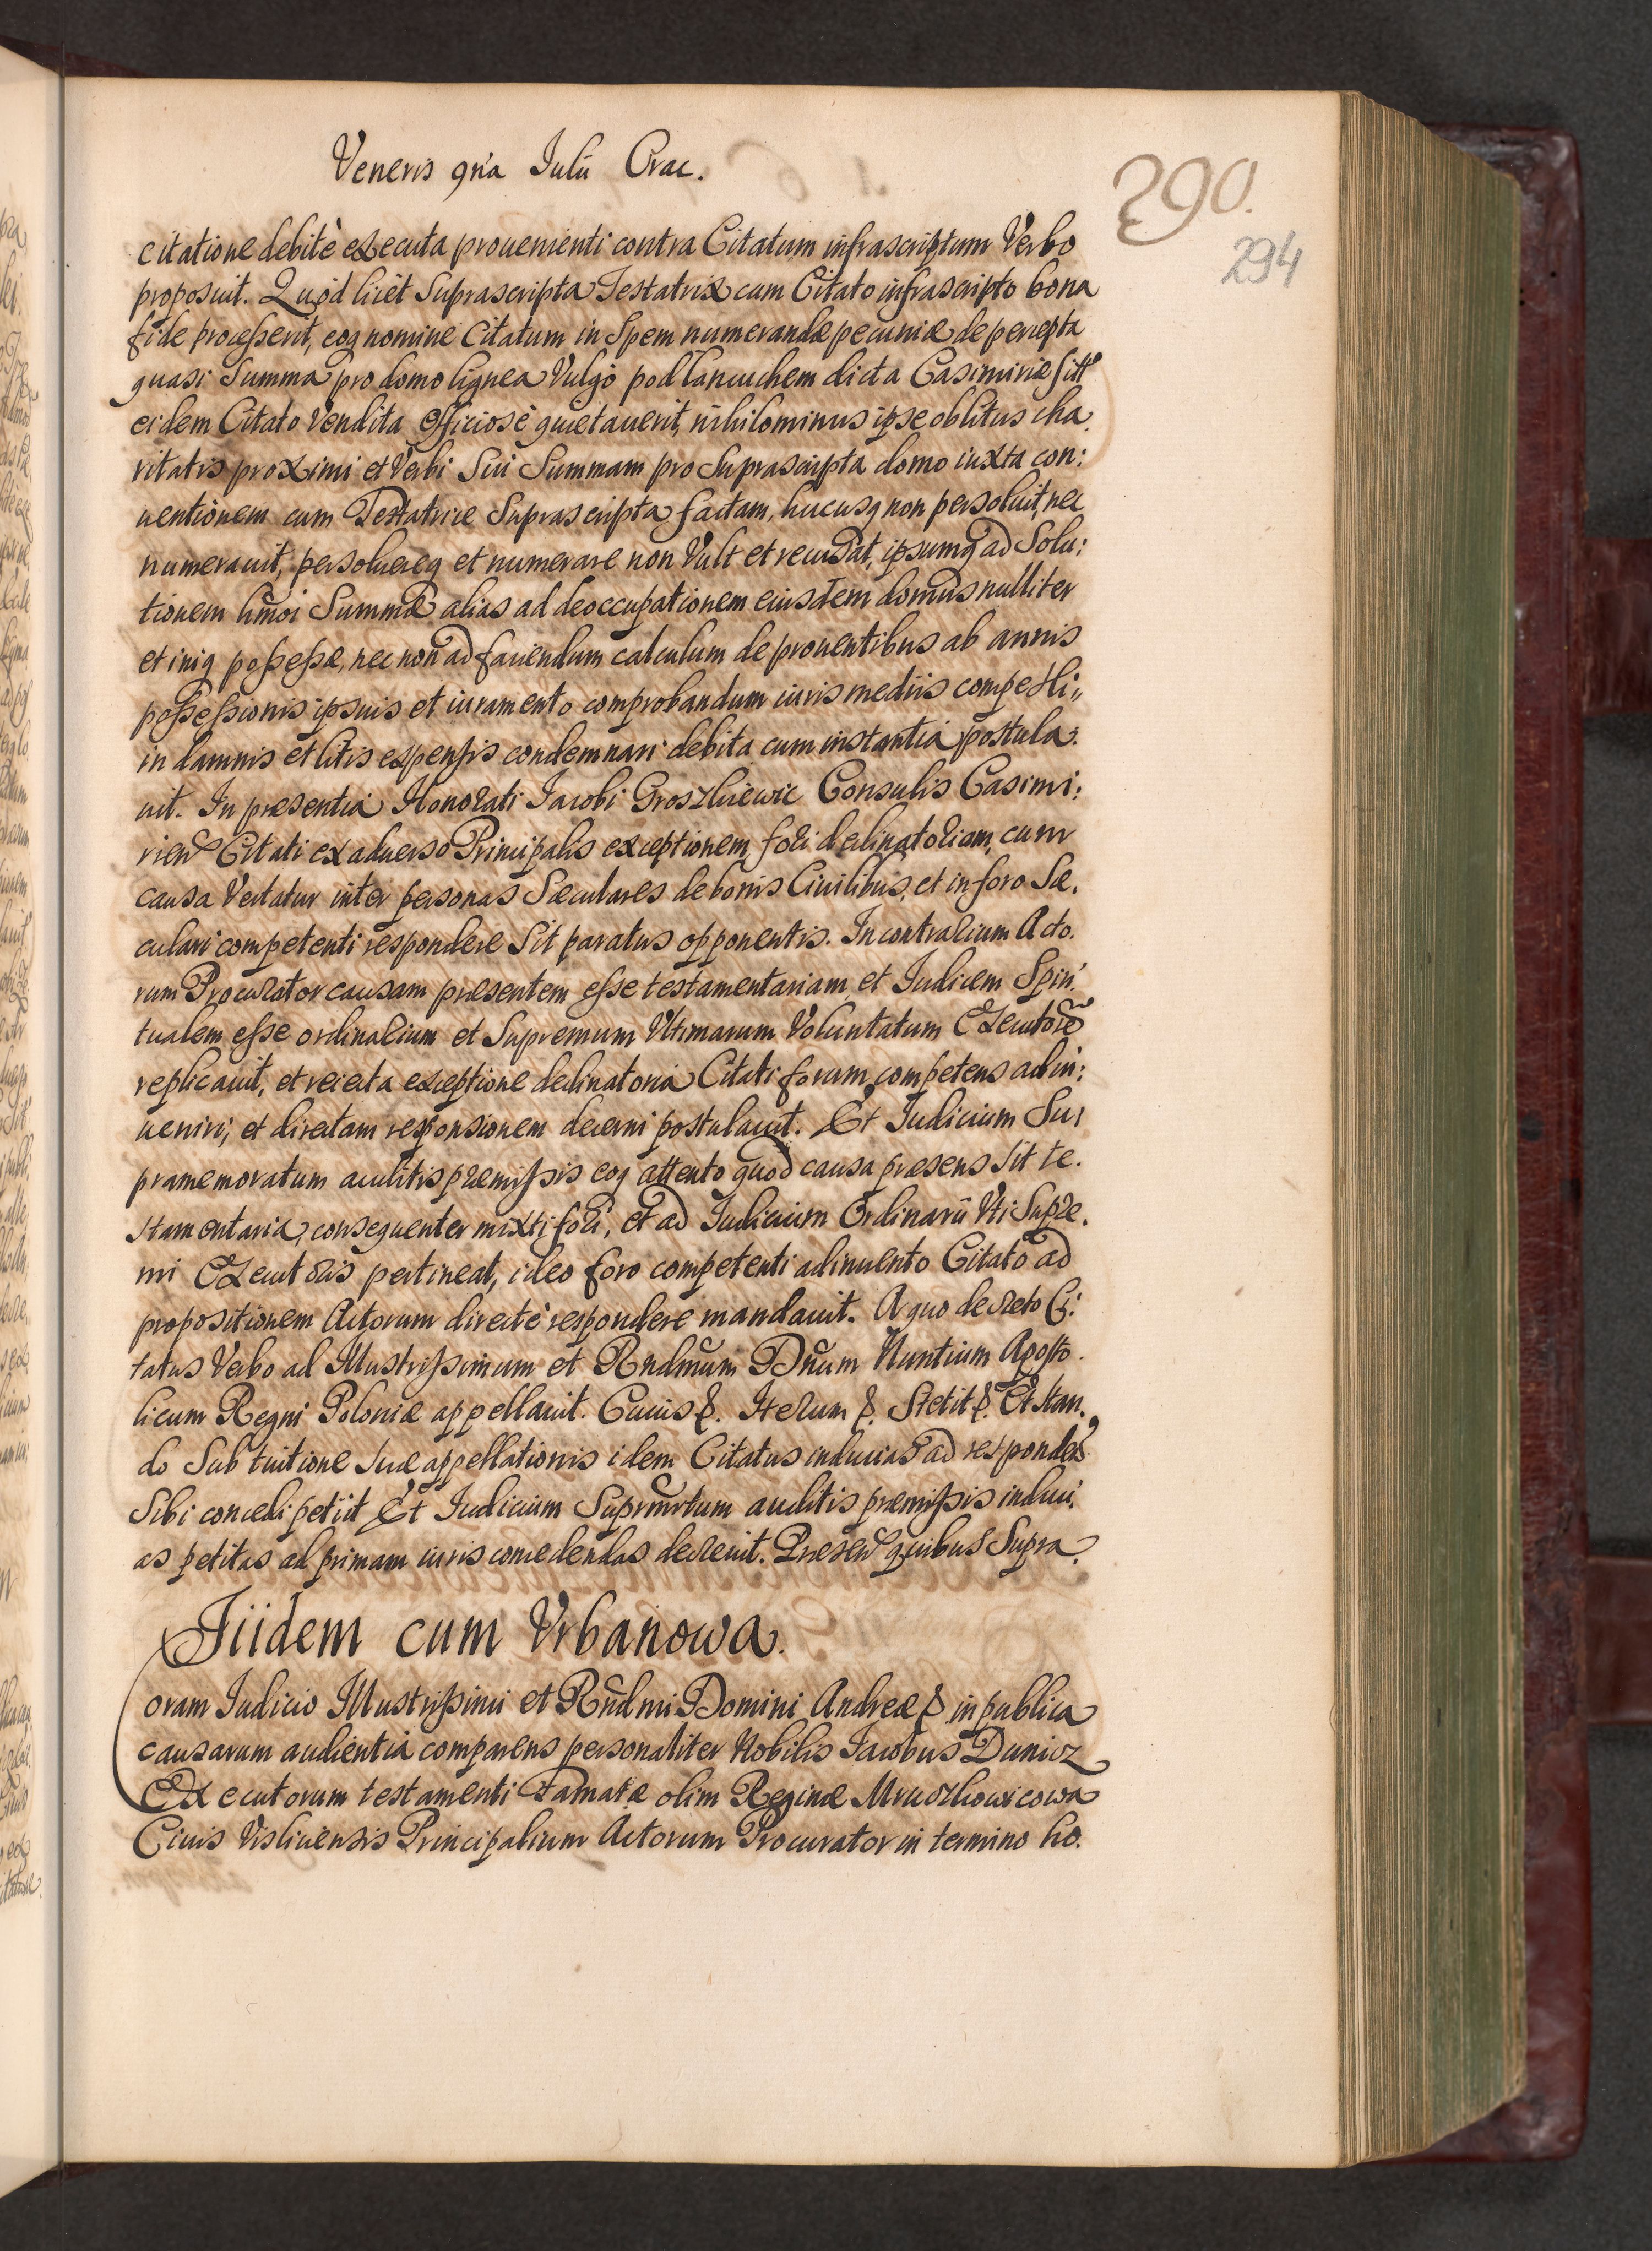 Veneris 9na Iulii Crac.
290.
294
citatione debitè executa prouenienti contra Citatum infrascriptum Verbo
proposuit. Quòd licèt Suprascripta Testatrix cum Citato infrascripto bona
fide processerit, eoq nomine Citatum in Spem numerandæ pecuniæ de percepta
quasi Summa pro domo lignea Vulgò pod lancuchem dicta Casimiriæ sitt
eidem Citato Vendita officiosè quietauerit, nihilominus ipse oblitus cha.
ritatis proximi et Verbi Sui Summam pro Suprascripta domo iuxta con:
uentionem cum Testatrice Suprascripta factam, hucusq non persoluit, nec
numerauit, persoluereq et numerare non Vult et recusat, ipsumq ad Solu:
tionem hmõi Summæ alias ad deoccupationem eiusdem domus nulliter
et iniq possessæ, nec non ad faciendum calculum de prouentibus ab annis
possessionis ipsius et iuramento comprobandum iuris mediis compelli,,
in damnis et litis expensis condemnari debita cum instantia postula:
uit. In præsentia Honorati Iacobi Groszkiewic Consulis Casimi:
rien Citati ex aduerso Principalis exceptionem fori declinatoriam, cum
causa Vertatur inter personas Sæculares de bonis Ciuilibus, et in foro Sæ.
culari competenti respondere Sit paratus opponentis. In contrarium Acto.
rum Procurator causam præsentem esse testamentariam et Iudicem Spiri
tualem esse ordinarium et Supremum Vltimarum Voluntatum Executorẽ
replicauit, et reiecta exceptione declinatoria Citati forum competens adin:
ueniri, et directam responsionem decerni postulauit. Et Iudicium Su:
pramemoratum auditis præmissis eoq attento quod causa præsens Sit te.
stamentaria, consequenter mixti fori, et ad Iudicium Ordinarii Vti Supre.
mi Executoris pertineat, ideo foro competenti adinuento Citato ad
propositionem Actorum directè respondere mandauit. A quo decreto Ci:
tatus Verbo ad Illustrissimum et Rndmum Dnum Nuntium Aposto.
licum Regni Poloniæ appellauit. Cuius &. Iterum &. Stetit &. Et stan.
do Sub tuitione suæ appellationis idem Citatus inducias ad responden
Sibi concedi petiit Et Iudicium Suprmrtum auditis præmissis induci.
as petitas ad primam iuris concedendas decreuit. Præsen quibus Supra.
Iiidem cum Vrbanowa.
Coram Iudicio Illustrissimi et Rndmi Domini Andreæ & in publica
causarum audientia comparens personaliter Nobilis Iacobus Dunicz
Executorum testamenti Famatæ olim Reginæ Mruczkowicowa
Ciuis Visliciensis Principalium Actorum Procurator in termino ho.